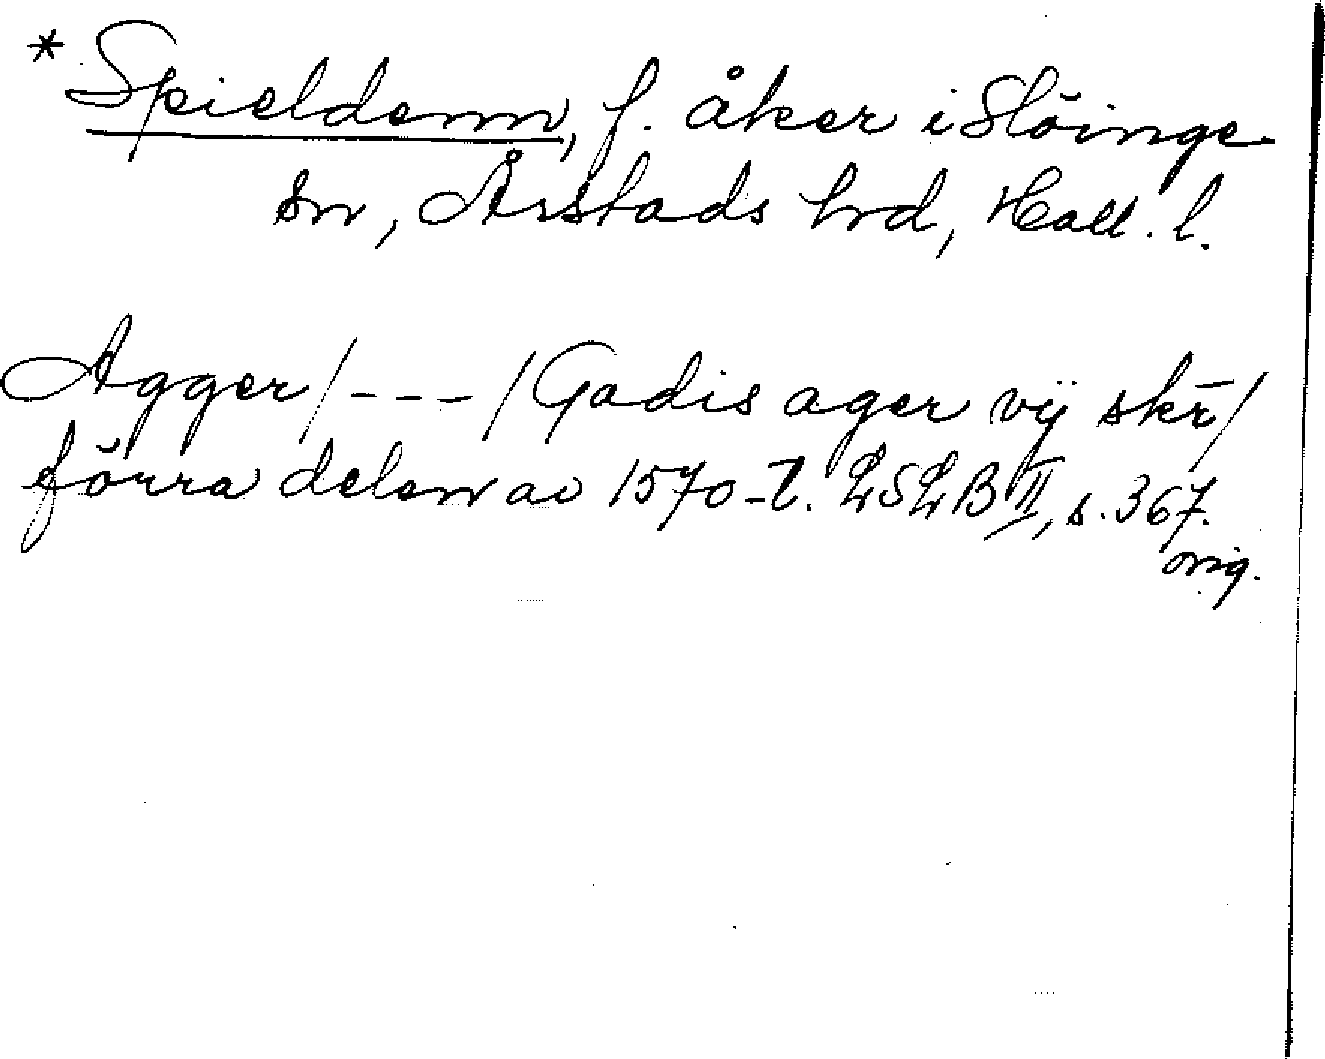 * Spieldenn, f. åker i Slöinge
sn, Årstads hrd, Hall. l.
Agger /---/ Gadis ager vÿ skr̄/
förra delen av 1570-t. LSLB II, s. 367.
orig.